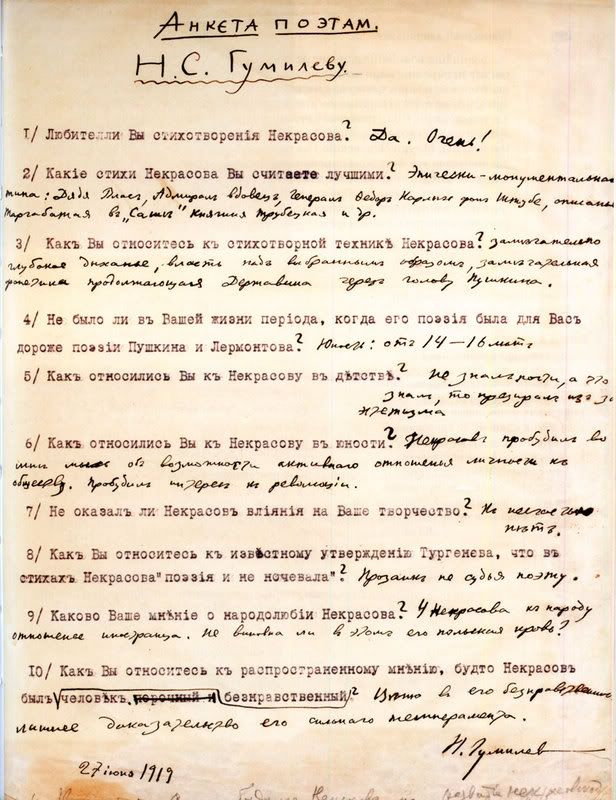 Анкета поэтам.
Н.С. Гумилеву.
1/ Любители Вы стихотворенія Некрасова? Да. Очень!
2/ Какіе стихи Некрасова Вы считаете лучшими? Эпически-монументальнаго
типа: Дядя Влас, Адмирал вдовец, Генерал Федор Карлыч фон Штубе, описание
Тарбагатая в "Саше" Княгиня Трубецкая и др.
3/ Какъ Вы относитесь къ стихотворной техникѣ Некрасова? Замечательно
глубокое дыханье, власть над выбранным образом, замечательная
фонетика продолжающая Державина через голову Пушкина.
4/ Не было ли въ Вашей жизни періода, когда его поэзія была для Васъ
дороже поэзіи Пушкина и Лермонтова? Юность: от 14 — 16 лет
5/ Какъ относились Вы къ Некрасову въ дѣтствѣ? Не знал почти, а что
знал, то презирал из за
эстетизма
6/ Какъ относились Вы къ Некрасову въ юности? Некрасов пробудил во
мне мысль об возможности активнаго отношенья личности к
обществу. Пробудил интерес к революціи.
7/ Не оказалъ ли Некрасовъ вліянія на Ваше творчество? К несчастью
нѣтъ.
8/ Какъ Вы относитесь къ извѣстному утвержденію Тургенева, что въ
стихахъ Некрасова "поэзія и не ночевала"? Прозаик не судья поэту.
9/ Каково Ваше мнѣніе о народолюбіи Некрасова? У Некрасова к народу
отношение иностранца. Не виновна ли в этом его польская кровь?
10/ Какъ Вы относитесь къ распространенному мнѣнію, будто Некрасовъ
былъ человѣкъ порочный и безнравственный? Ценю в его безнравственности
лишнее доказательство его сильнаго темперамента.
Н. Гумилев
27 июня 1919